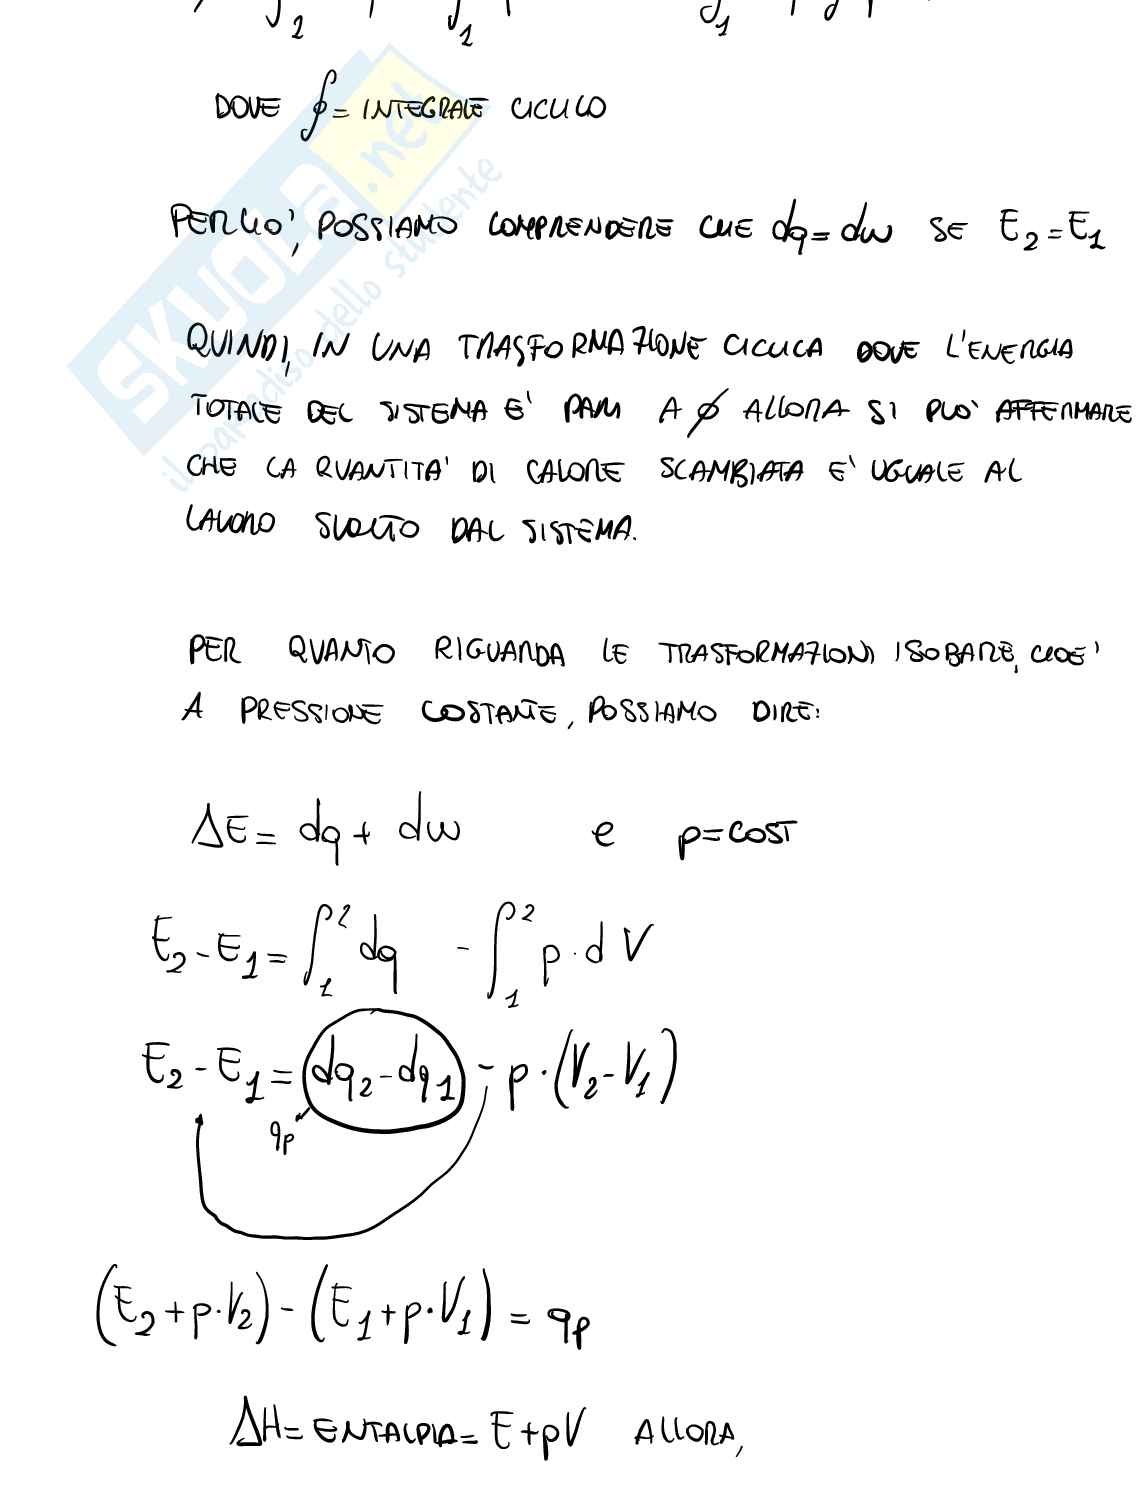 ∫2 ∫1 ∫1
DOVE ∮ = INTEGRALE CICLICO
PERCIO', POSSIAMO COMPRENDERE CHE dq = dw SE E2 = E1
QUINDI, IN UNA TRASFORMAZIONE CICLICA DOVE L'ENERGIA
TOTALE DEL SISTEMA E' PARI A ∅ ALLORA SI PUO' AFFERMARE
CHE LA QUANTITA' DI CALORE SCAMBIATA E' UGUALE AL
LAVORO SVOLTO DAL SISTEMA.
PER QUANTO RIGUARDA LE TRASFORMAZIONI ISOBARE, CIOE'
A PRESSIONE COSTANTE, POSSIAMO DIRE:
ΔE = dq + dw e p = COST
E2 - E1 = ∫1^2 dq - ∫1^2 p · dV
E2 - E1 = dq2 - dq1 - p · (V2 - V1)
qp
(E2 + p · V2) - (E1 + p · V1) = qp
ΔH = ENTALPIA = E + pV ALLORA,
SKUOLA.net
il paradiso dello studente